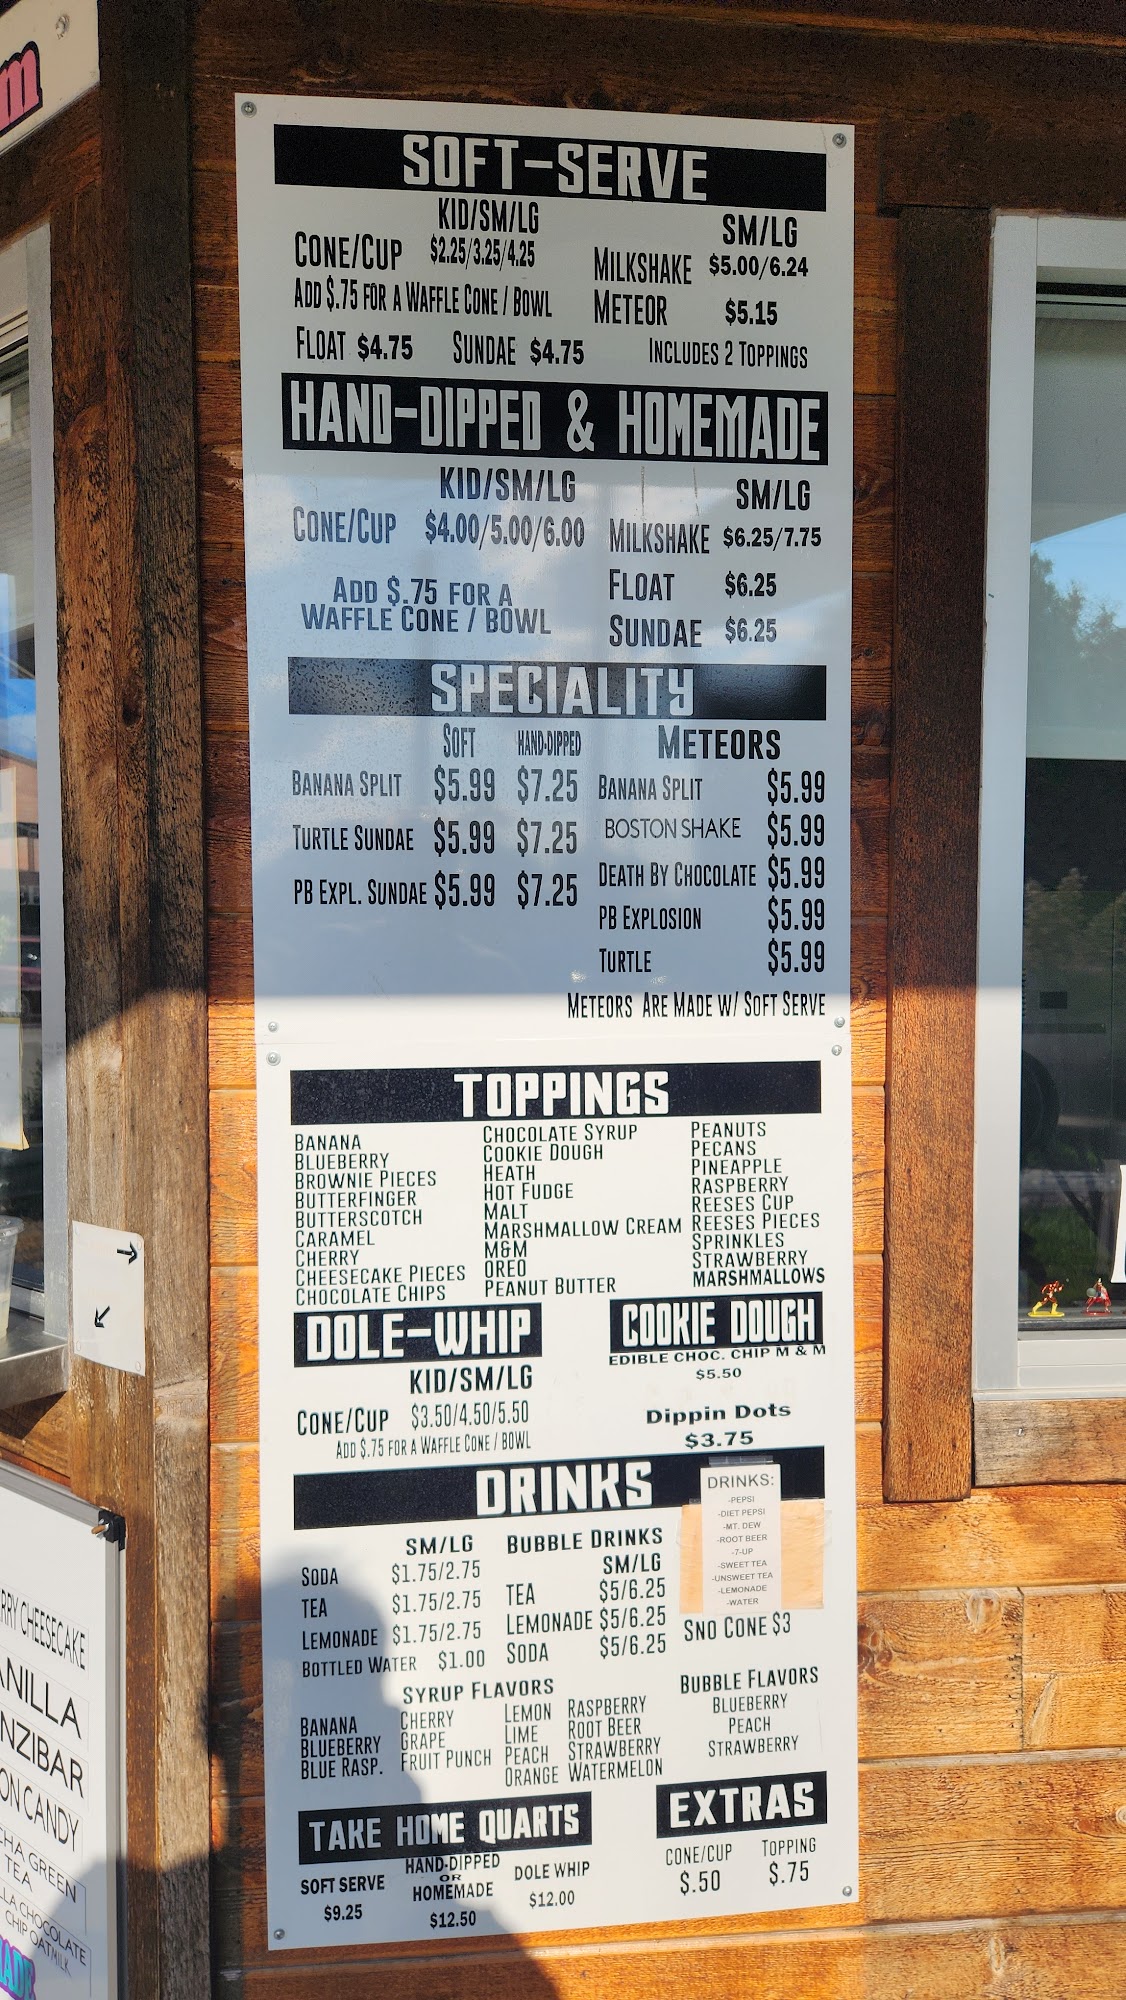 m
SOFT-SERVE
KID/SM/LG
CONE/CUP $2.25/3.25/4.25
ADD $.75 FOR A WAFFLE CONE / BOWL
FLOAT $4.75 SUNDAE $4.75
SM/LG
MILKSHAKE $5.00/6.24
METEOR $5.15
INCLUDES 2 TOPPINGS
HAND-DIPPED & HOMEMADE
KID/SM/LG
CONE/CUP $4.00/5.00/6.00
ADD $.75 FOR A
WAFFLE CONE / BOWL
SM/LG
MILKSHAKE $6.25/7.75
FLOAT $6.25
SUNDAE $6.25
SPECIALITY
SOFT HAND-DIPPED
BANANA SPLIT $5.99 $7.25
TURTLE SUNDAE $5.99 $7.25
PB EXPL. SUNDAE $5.99 $7.25
METEORS
BANANA SPLIT $5.99
BOSTON SHAKE $5.99
DEATH BY CHOCOLATE $5.99
PB EXPLOSION $5.99
TURTLE $5.99
METEORS ARE MADE W/ SOFT SERVE
TOPPINGS
BANANA
BLUEBERRY
BROWNIE PIECES
BUTTERFINGER
BUTTERSCOTCH
CARAMEL
CHERRY
CHEESECAKE PIECES
CHOCOLATE CHIPS
CHOCOLATE SYRUP
COOKIE DOUGH
HEATH
HOT FUDGE
MALT
MARSHMALLOW CREAM
M&M
OREO
PEANUT BUTTER
PEANUTS
PECANS
PINEAPPLE
RASPBERRY
REESES CUP
REESES PIECES
SPRINKLES
STRAWBERRY
MARSHMALLOWS
DOLE-WHIP
KID/SM/LG
CONE/CUP $3.50/4.50/5.50
ADD $.75 FOR A WAFFLE CONE / BOWL
COOKIE DOUGH
EDIBLE CHOC. CHIP M & M
$5.50
Dippin Dots
$3.75
DRINKS
SM/LG
SODA $1.75/2.75
TEA $1.75/2.75
LEMONADE $1.75/2.75
BOTTLED WATER $1.00
BUBBLE DRINKS
SM/LG
TEA $5/6.25
LEMONADE $5/6.25
SODA $5/6.25
DRINKS:
-PEPSI
-DIET PEPSI
-MT. DEW
-ROOT BEER
-7-UP
-SWEET TEA
-UNSWEET TEA
-LEMONADE
-WATER
SNO CONE $3
SYRUP FLAVORS
BANANA
BLUEBERRY
BLUE RASP.
CHERRY
GRAPE
FRUIT PUNCH
LEMON
LIME
PEACH
ORANGE
RASPBERRY
ROOT BEER
STRAWBERRY
WATERMELON
BUBBLE FLAVORS
BLUEBERRY
PEACH
STRAWBERRY
TAKE HOME QUARTS
SOFT SERVE
$9.25
HAND-DIPPED
OR
HOMEMADE
$12.50
DOLE WHIP
$12.00
EXTRAS
CONE/CUP
$.50
TOPPING
$.75
RRY CHEESECAKE
ANILLA
NZIBAR
ON CANDY
CHA GREEN
TEA
LA CHOCOLATE
CHIP OATMILK